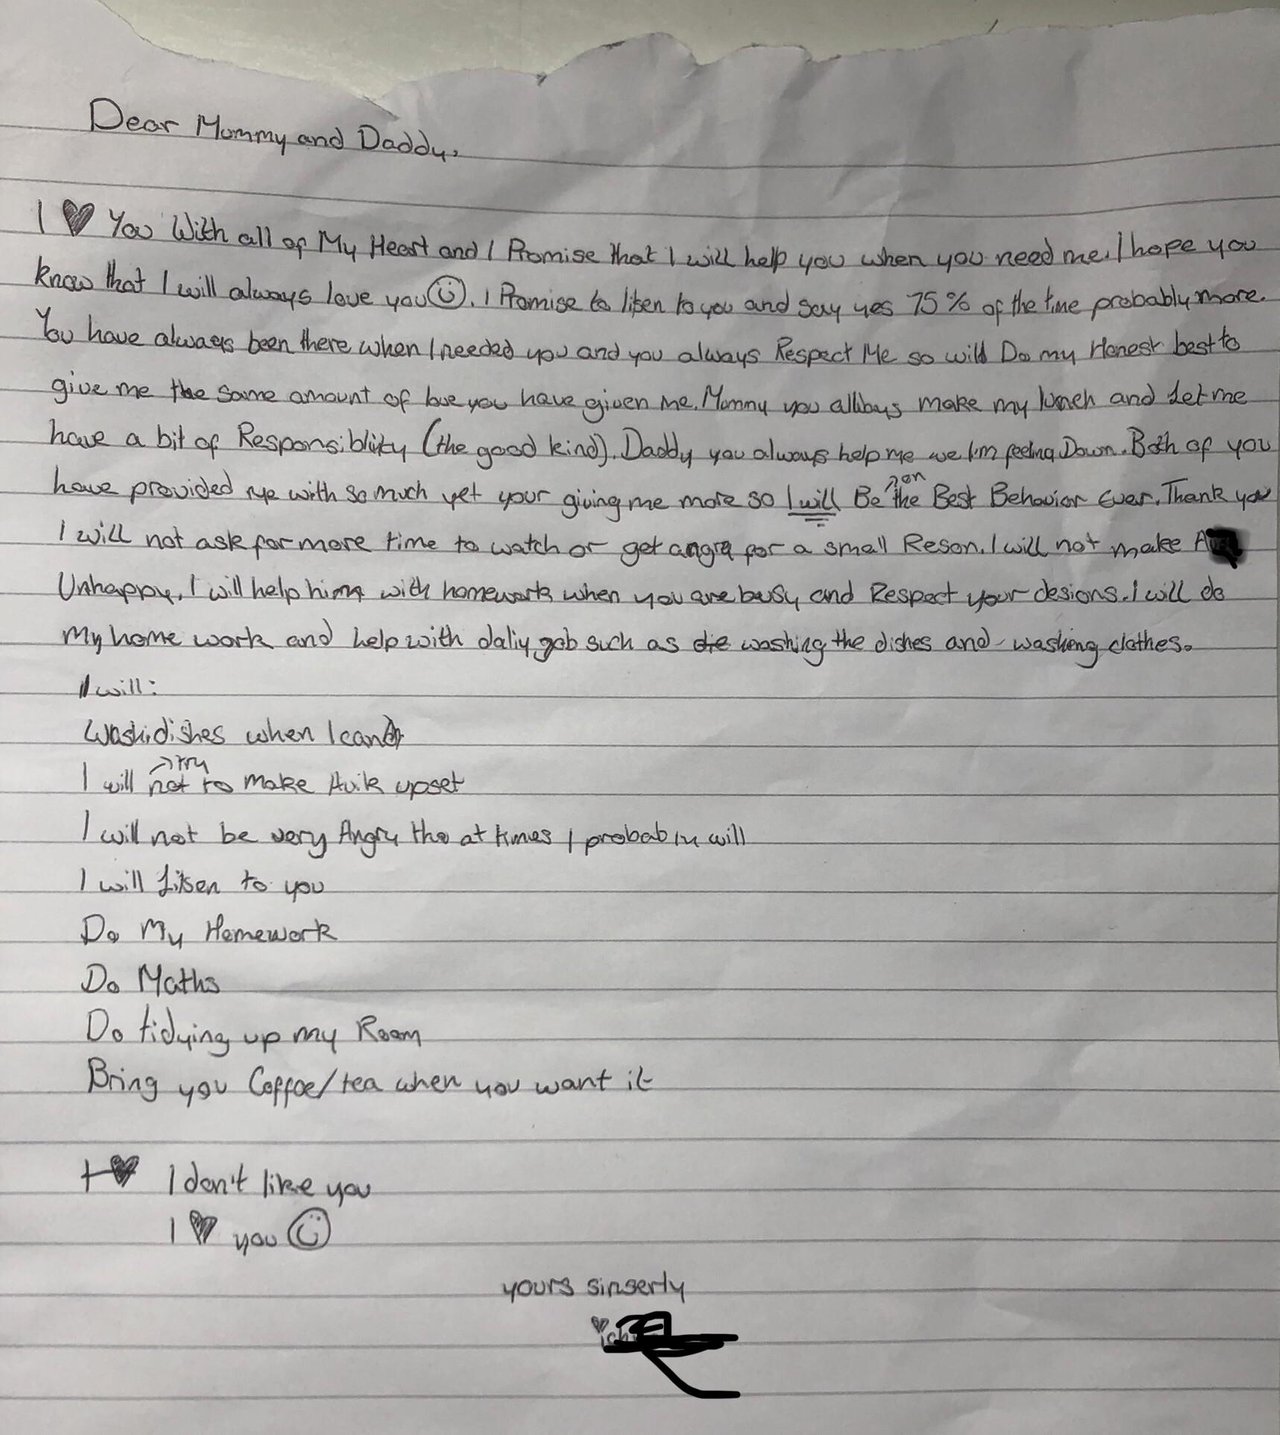 Dear Mummy and Daddy,
I ♥ You With all of My Heart and I Promise that I will help you when you need me. I hope you
know that I will always love you☺. I Promise to lisen to you and say yes 75% of the time probably more.
You have always been there when I needed you and you always Respect Me so will Do my Honest best to
give me the same amount of love you have given me. Mommy you allways make my lunch and Let me
have a bit of Responsiblity (the good kind). Daddy you always help me we I'm feeling Down. Both of you
have provided me with so much yet your giving me more so I will Be on the Best Behavior Ever. Thank you
I will not ask for more time to watch or get angry for a small Reson. I will not make A
Unhappy. I will help him with homework when you are busy and Respect your desions. I will do
My home work and help with daliy gob such as die washing the dishes and washing clothes.
I will:
Wash dishes when I can
I will try not to make Avik upset
I will not be very Angry tho at times I probably will
I will Lisen to you
Do My Homework
Do Maths
Do tidying up my Room
Bring you Coffoe/tea when you want it
I ♥ I don't like you
I ♥ you ☺
yours sinserly